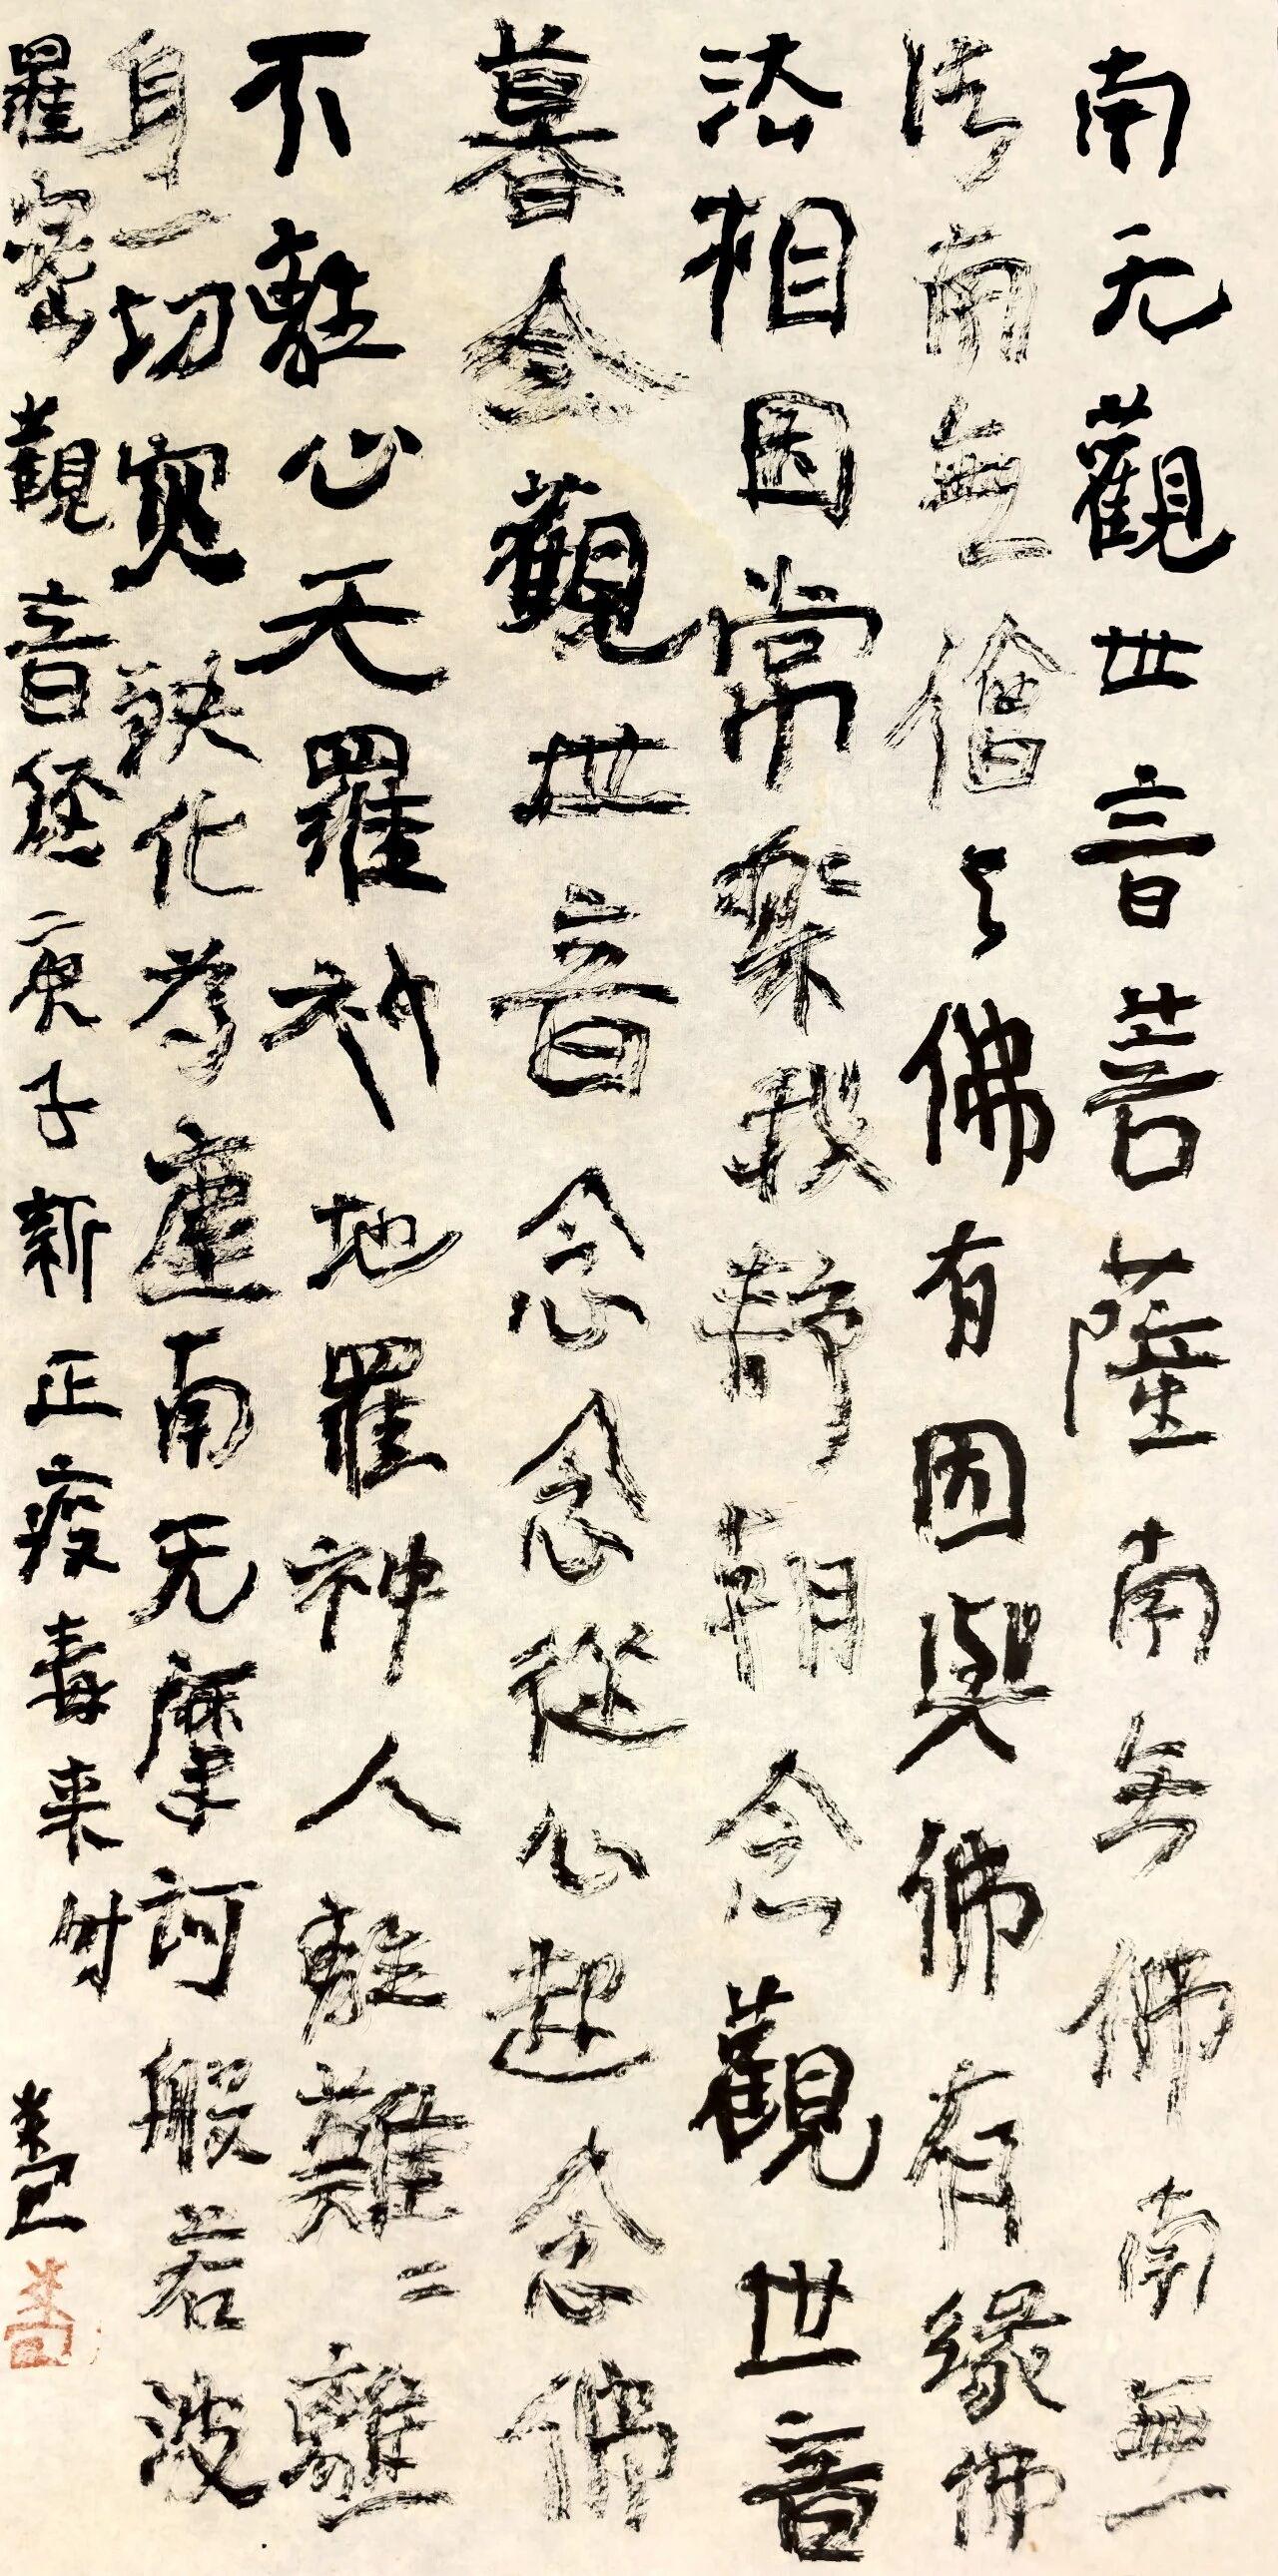 南无觀世音菩薩南無佛南無
法南無僧與佛有因與佛有緣佛
法相因常樂我靜朝念觀世音
暮念觀世音念念從心起念佛
不離心天羅神地羅神人離難難離
身一切災殃化為塵南无摩訶般若波
羅密觀音經庚子新正疫毒来时